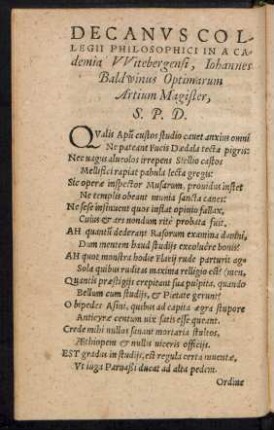 DECANVS COL-
LEGII PHILOSOPHICI IN ACA-
demia VVitebergensi, Iohannes
Baldwinus Optimarum
Artium Magister,
S. P. D.
QValis Apũ custos studio cauet anxius omni
Ne pareant Fucis Dædala tecta pigris:
Nec uagus alueolos irrepens Stellio castos
Mellifici rapiat pabula lecta gregis:
Sic operæ inspector Musarum, prouidus instet
Ne templis obeant munia sancta canes:
Ne sese insinuent quos inflat opinio fallax,
Cuius & ars nondum ritè probata fuit.
AH quantũ dederant Rasorum examina damni,
Dum mentem haud studijs excoluêre bonis?
AH quot monstra hodie Flavij rude parturit
Sola quibus ruditas maxima relligio est? 
Quantis præstigijs crepitant sua pulpita, quando
Bellum cum studijs, & Pietate gerunt?
O bipedes Asini, quibus ad capita ægra stupore
Anticyræ centum uix satis esse queant.
Crede mihi nullas sanant mortaria stultos,
Æthiopem & nullus uiceris officijs.
EST gradus in studijs, est regula certa iuuentæ,
Vt iuga Parnassi ducat ad alta pedem.
Ordine